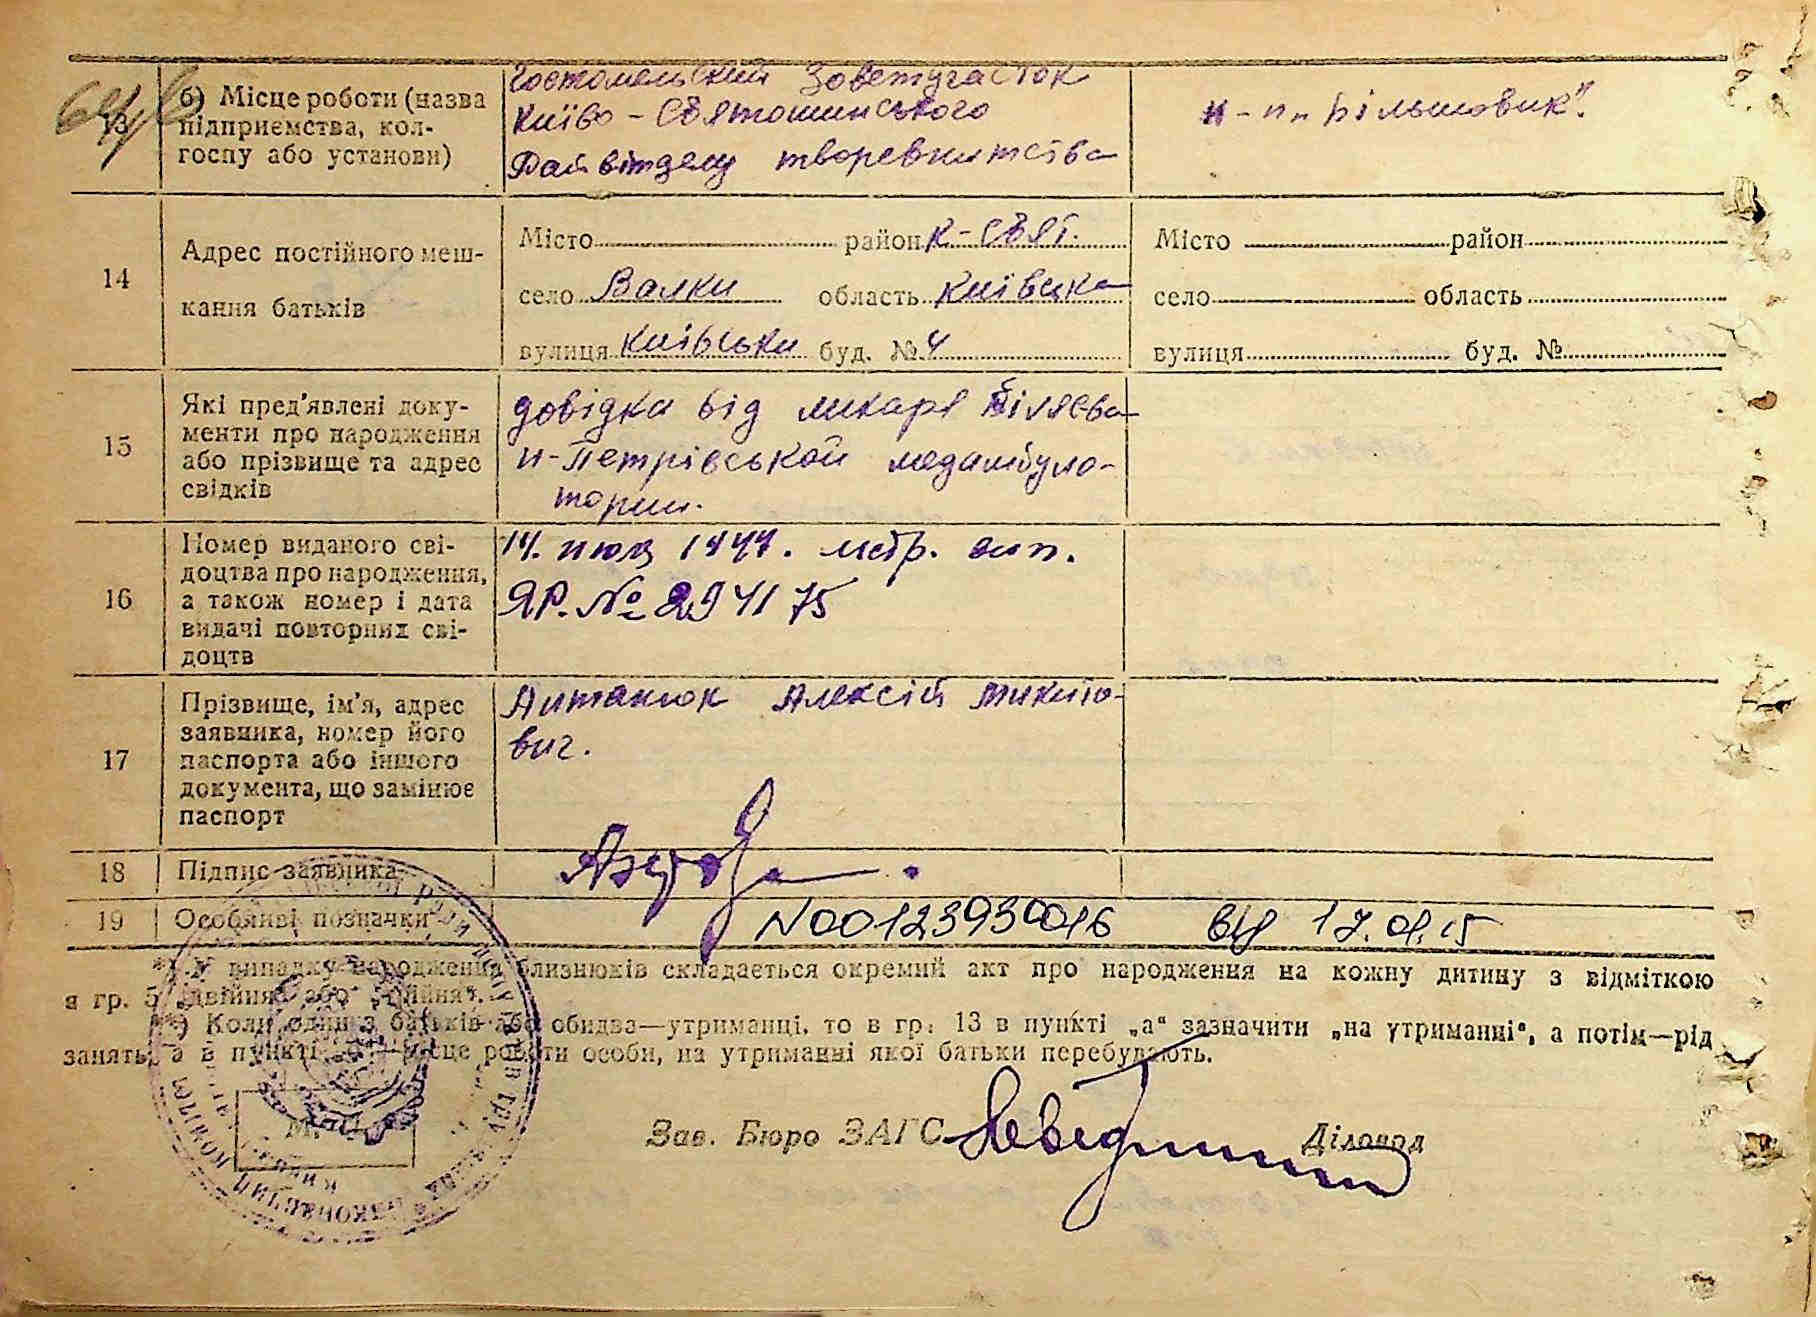 13
б) Місце роботи (назва
підприємства, кол-
госпу або установи)
Гостомельский Зоветучасток
Київо - Святошинського
Райвітделу творевництва
к-п „Більшовик".
14
Адрес постійного меш-
кання батьків
Місто район К-Свят.
село Валки область Київска
вулиця Київська буд. № 4
Місто район
село область
вулиця буд. №
15
Які пред'явлені доку-
менти про народження
або прізвище та адрес
свідків
довідка від лікаря Біляєва
п-Петрівськой медамбула-
тории.
16
Номер виданого сві-
доцтва про народження,
а також номер і дата
видачі повторних сві-
доцтв
14. 1947.
ЯР. № 294175
17
Прізвище, ім'я, адрес
заявника, номер його
паспорта або іншого
документа, що замінює
паспорт
Антанюк Алексій Микито-
вич.
18
Підпис заявника
19
Особливі позначки
N00123930016 від 17.01.15
*) У випадку народження близнюків складається окремий акт про народження на кожну дитину з відміткою
в гр. 5 „двійня" або „трійня".
**) Коли один з батьків або обидва—утриманці, то в гр. 13 в пункті „а" зазначити „на утриманні", а потім—рід
занять, а в пункті —місце роботи особи, на утриманні якої батьки перебувають.
М. П.
Зав. Бюро ЗАГС
Діловод